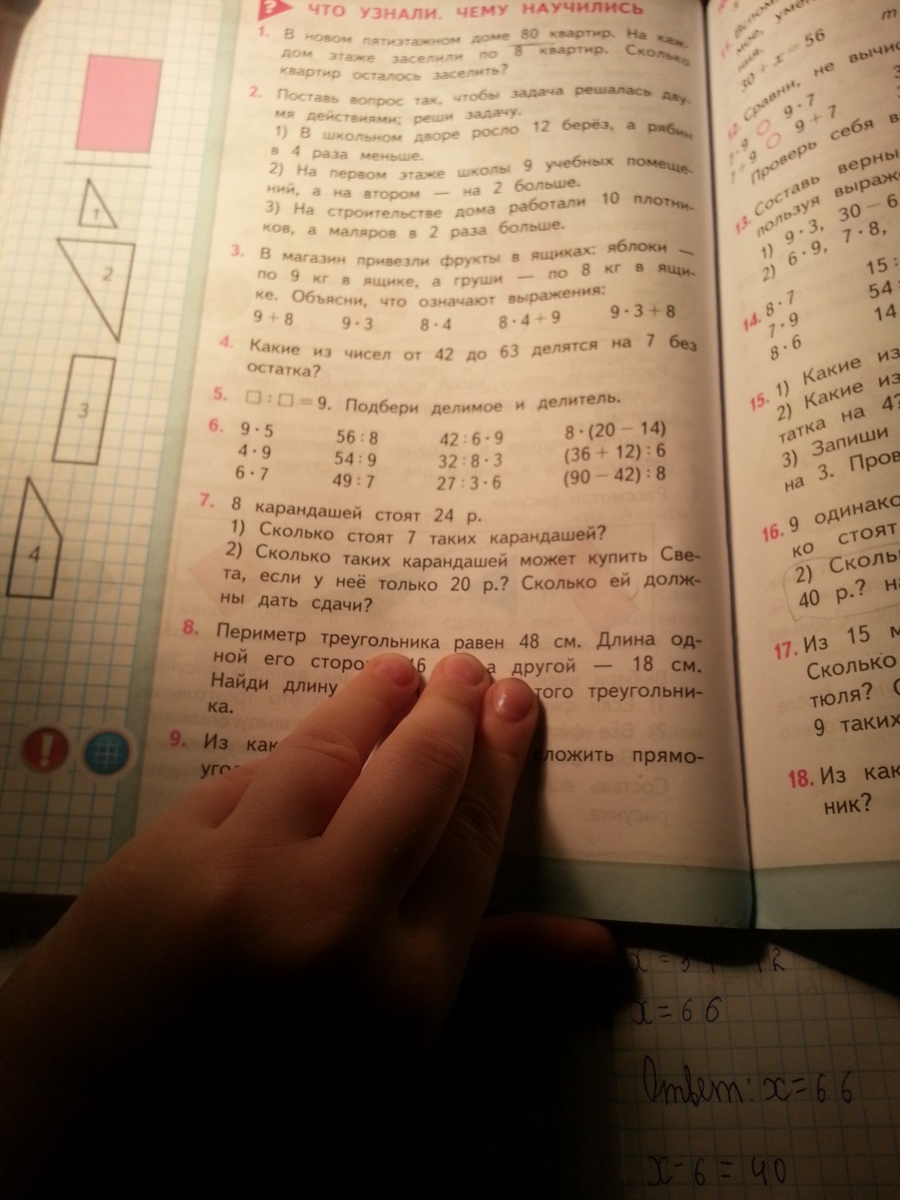 ЧТО УЗНАЛИ. ЧЕМУ НАУЧИЛИСЬ
1. В новом пятиэтажном доме 80 квартир. На каж-
дом этаже заселили по 8 квартир. Сколько
квартир осталось заселить?
2. Поставь вопрос так, чтобы задача решалась дву-
мя действиями; реши задачу.
1) В школьном дворе росло 12 берёз, а рябин
в 4 раза меньше.
2) На первом этаже школы 9 учебных помеще-
ний, а на втором — на 2 больше.
3) На строительстве дома работали 10 плотни-
ков, а маляров в 2 раза больше.
3. В магазин привезли фрукты в ящиках: яблоки —
по 9 кг в ящике, а груши — по 8 кг в ящи-
ке. Объясни, что означают выражения:
9 + 8 9 · 3 8 · 4 8 · 4 + 9 9 · 3 + 8
4. Какие из чисел от 42 до 63 делятся на 7 без
остатка?
5. □ : □ = 9. Подбери делимое и делитель.
6. 9 · 5 56 : 8 42 : 6 · 9 8 · (20 − 14)
4 · 9 54 : 9 32 : 8 · 3 (36 + 12) : 6
6 · 7 49 : 7 27 : 3 · 6 (90 − 42) : 8
7. 8 карандашей стоят 24 р.
1) Сколько стоят 7 таких карандашей?
2) Сколько таких карандашей может купить Све-
та, если у неё только 20 р.? Сколько ей долж-
ны дать сдачи?
8. Периметр треугольника равен 48 см. Длина од-
ной его а другой — 18 см.
Найди длину треугольни-
ка.
9. Из прямо-
1
2
3
4
30 + x = 56
12. Сравни, не
7 · 9 ○ 9 · 7
7 + 9 ○ 9 + 7
Проверь себя
13. Составь
1) 9 · 3, 30 − 6
2) 6 · 9, 7 · 8,
14. 8 · 7 15 :
7 · 9 54
8 · 6 14
15. 1) Какие из
2) Какие из
татка на 4?
3) Запиши
на 3.
16. 9
ко стоят
2)
40 р.?
17. Из 15
Сколько
тюля?
9 таких
18. Из
ник?
x = 66
Ответ: x = 66
x - 6 = 40